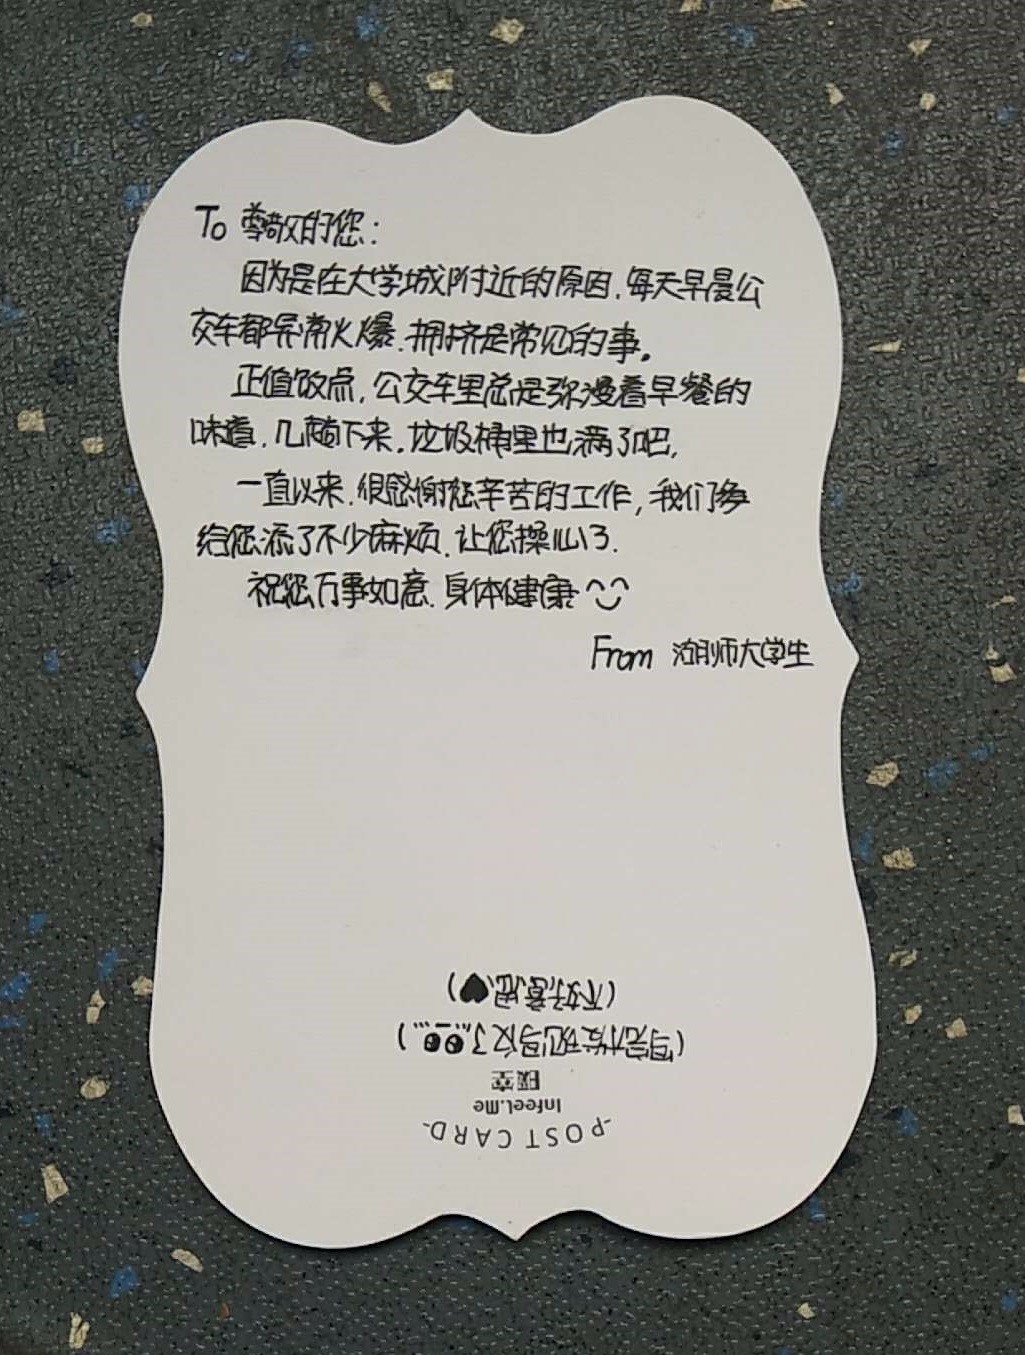 To 尊敬的您：
因为是在大学城附近的原因，每天早晨公
交车都异常火爆，拥挤是常见的事。
正值饭点，公交车里总是弥漫着早餐的
味道，几趟下来，垃圾桶里也满了吧，
一直以来，很感谢您辛苦的工作，我们
给您添了不少麻烦，让您操心了.
祝您万事如意，身体健康
From 湖师大学生
-POST CARD-
Infeel.Me
瞑空
(写完才发现写反了,,,,)
(不好意思,♥)